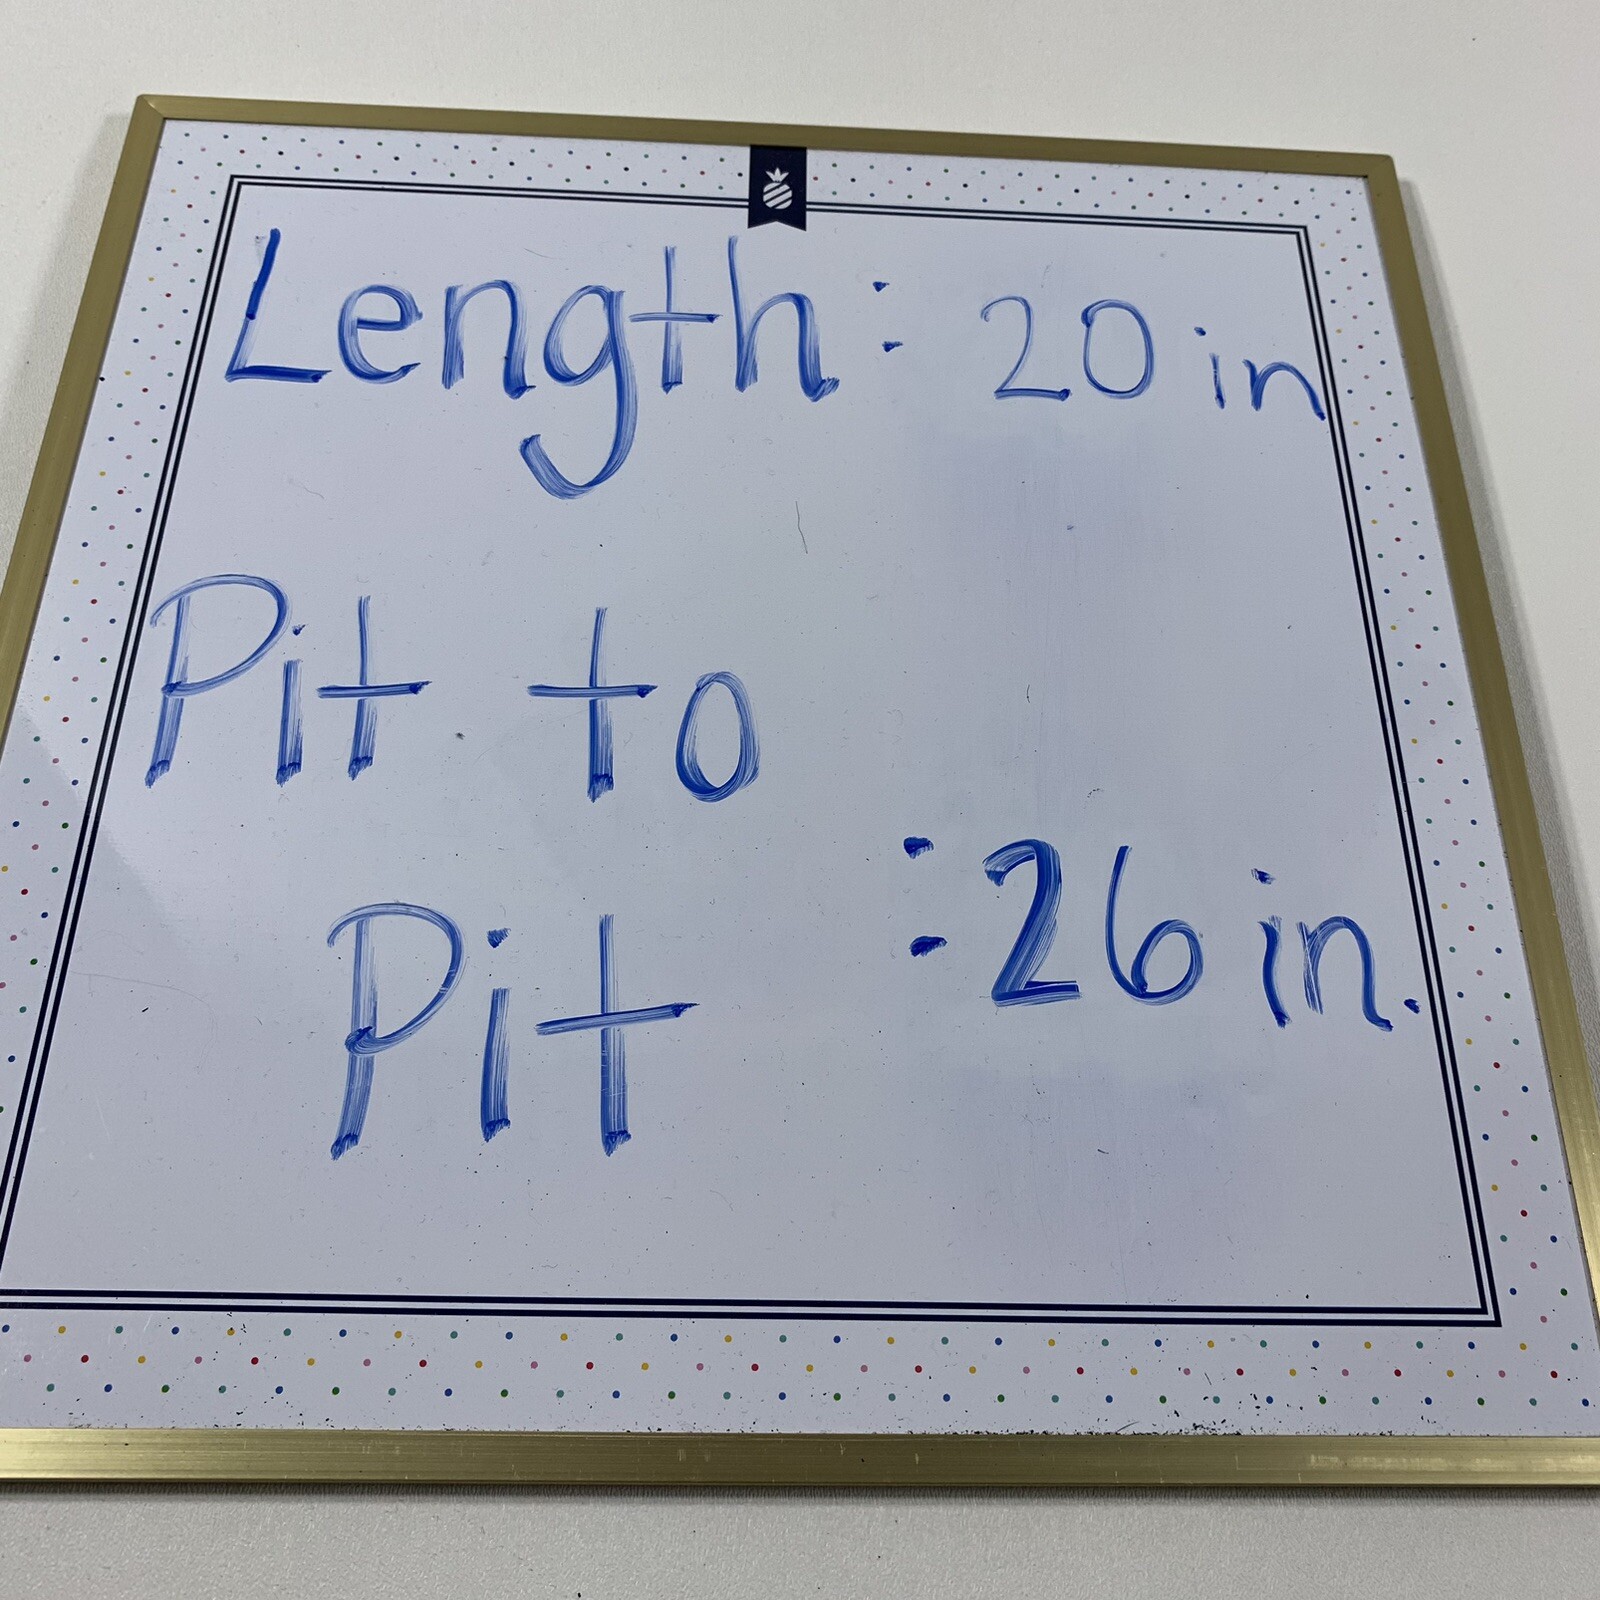 Length: 20 in
Pit to
Pit : 26 in.